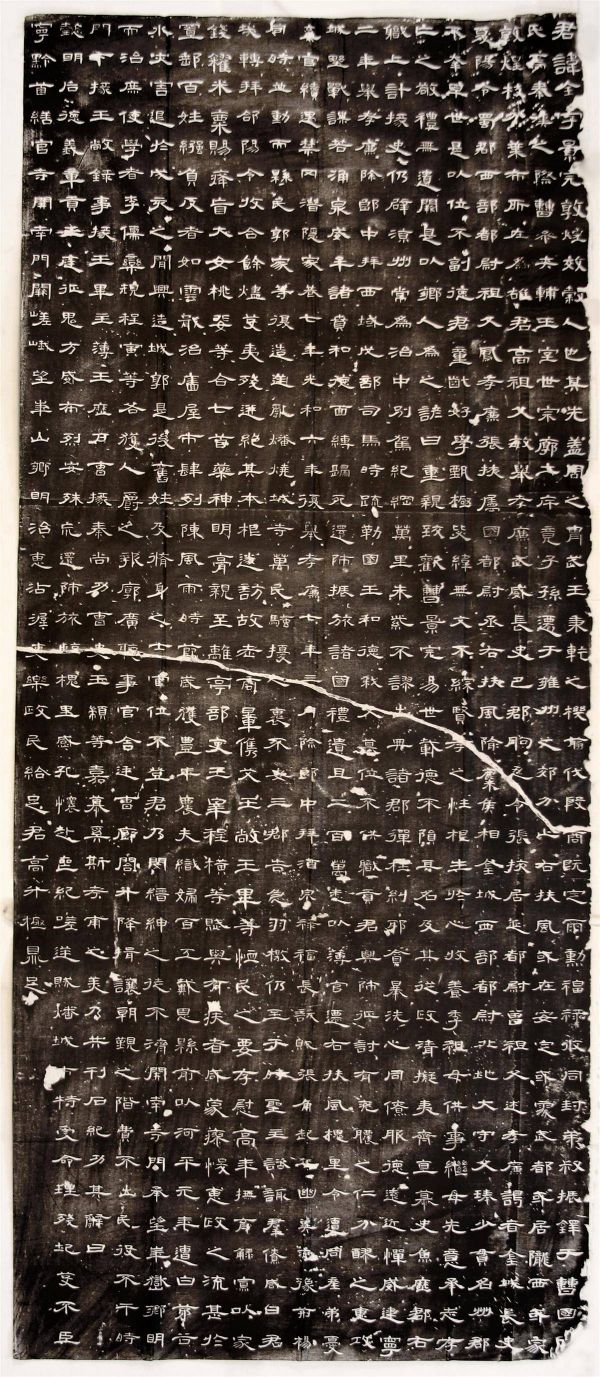 君諱全字景完敦煌效穀人也其先蓋周之胄武王秉乾之機翦伐殷商既定爾勳福祿攸同封弟叔振鐸于曹國因
氏焉秦漢之際曹參夾輔王室世宗廓土斥竟子孫遷于雍州之郊分止右扶風或在安定或處武都或居隴西或家
敦煌枝分葉布所在為雄君高祖父敏舉孝廉武威長史巴郡朐忍令張掖居延都尉曾祖父述孝廉謁者金城長史
夏陽令蜀郡西部都尉祖父鳳孝廉張掖屬國都尉丞右扶風隃麋侯相金城西部都尉北地大守父琫少貫名州郡
不幸早世是以位不副德君童齔好學甄極毖緯無文不綜賢孝之性根生於心收養季祖母供事繼母先意承志存
亡之敬禮無遺闕是以鄉人為之諺曰重親致歡曹景完易世載德不隕其名及其從政清擬夷齊直慕史魚歷郡右
職上計掾史仍辟涼州常為治中別駕紀綱萬里朱紫不謬出典諸郡彈枉糾邪貪暴洗心同僚服德遠近憚威建寧
二年舉孝廉除郎中拜西域戊部司馬時疏勒國王和德弒父篡位不供職貢君興師征討有吮膿之仁分醪之惠攻
城野戰謀若涌泉威牟諸賁和德面縛歸死還師振旅諸國禮遺且二百萬悉以薄官遷右扶風槐里令遭同產弟憂
棄官續遇禁冈潛隱家巷七年光和六年復舉孝廉七年三月除郎中拜酒泉祿福長訞賊張角起兵幽冀兗豫荊楊
同時並動而縣民郭家等復造逆亂燔燒城寺萬民騷擾人裹不安三郡告急羽檄仍至于時聖主諮諏群僚咸曰君
哉轉拜郃陽令收合餘燼芟夷殘迸絕其本根遂訪故老商量儁艾王敞王畢等恤民之要存慰高年撫育鰥寡以家
錢糴米粟賜癃盲大女桃婓等合七首藥神明膏親至離亭部吏王宰程橫等賦與有疾者咸蒙瘳悛惠政之流甚於
置郵百姓繦負反者如雲戢治廧屋市肆列陳風雨時節歲獲豐年農夫織婦百工戴恩縣前以河平元年遭白茅谷
水灾害退於戊亥之間興造城郭是後舊姓及脩身之士官位不登君乃閔縉紳之徒不濟開南寺門承望華嶽鄉明
而治庶使學者李儒欒規程寅等各獲人爵之報廓廣聽事官舍廷曹廊閣升降揖讓朝覲之階費不出民役不干時
門下掾王敞錄事掾王畢主薄王歷戶曹掾秦尚功曹史王顓等嘉慕奚斯考甫之美乃共刊石紀功其辭曰
懿明后德義章貢王庭征鬼方威布烈安殊巟還師旅臨槐里感孔懷赴喪紀嗟逆賊燔城市特受命理殘圮芟不臣
寧黔首繕官寺開南門闕嵯峨望華山鄉明治惠沾渥吏樂政民給足君高升極鼎足